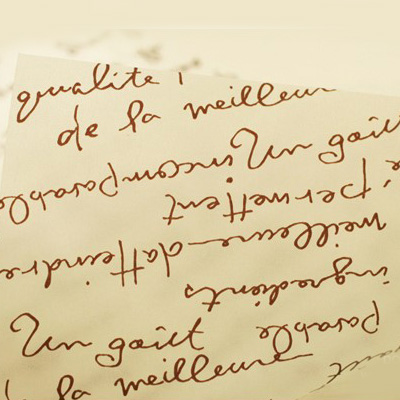 qualité
de la meilleur
Un goût
incomparable
permettent
meilleure d'atteindre
ingrédients
Un goût
parable
la meilleure